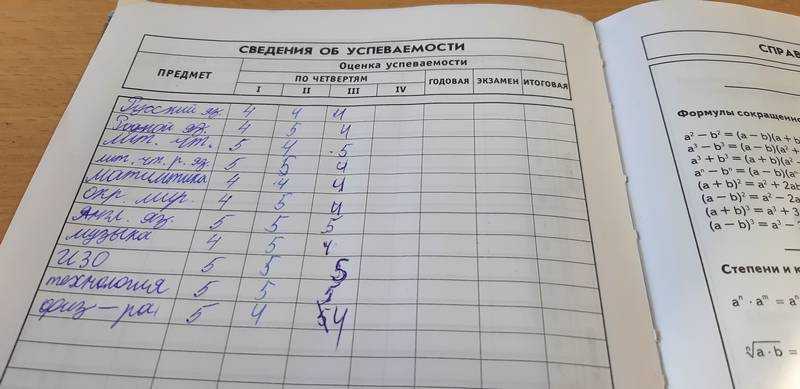 СВЕДЕНИЯ ОБ УСПЕВАЕМОСТИ
ПРЕДМЕТ
Оценка успеваемости
ПО ЧЕТВЕРТЯМ ГОДОВАЯ ЭКЗАМЕН ИТОГОВАЯ
I II III IV
Русский яз. 4 4 4
Родной яз. 4 5 4
лит. чт. 5 4 5
лит. чт. р. яз. 5 5 4
математика 4 4 4
окр. мир. 4 5 4
англ. яз. 5 5 5
музыка 4 5 4
ИЗО 5 5 5
технология 5 5 5
физ-ра 5 4 54
СПРАВ
Формулы сокращенно
a² − b² = (a − b)(a + b
a³ − b³ = (a − b)(a² +
a³ + b³ = (a + b)(a²
aⁿ − bⁿ = (a − b)(aⁿ
(a + b)² = a² + 2ab
(a − b)² = a² − 2a
(a + b)³ = a³ + 3
(a − b)³ = a³ −
Степени и к
aⁿ · aᵐ = aⁿ
√a · b =